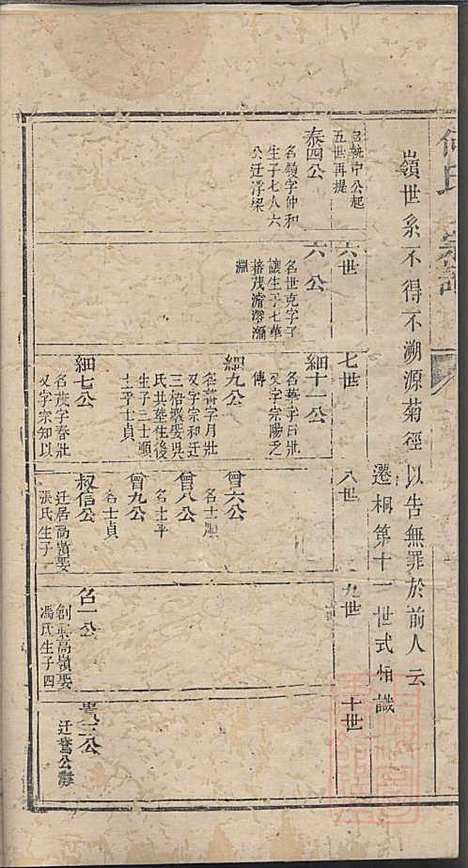 何氏宗譜
嶺世系不得不溯源菊徑以告無罪於前人云
遷桐第十一世式恒識
六世
七世
八世
九世
十世
統中公起
五世再提
泰四公
名嶺字仲和
生子七人六
公迁浮梁
六公
名世克字子
讓生子七華
蕃茂
淵
細十一公
名華字日壯
又字宗陽乏
傳
細九公
名蕃字月壯
又字宗和迁
三梧製娶吳
氏共葬生後
生子三士順
士平士貞
細七公
名茂字春壯
又字宗知以
曾六公
名士順
曾八公
名士平
曾九公
名士貞
叔信公
迁居高嶺娶
張氏生子一
名一公
創業高嶺娶
馮氏生子四
三公
迁鶯公灘